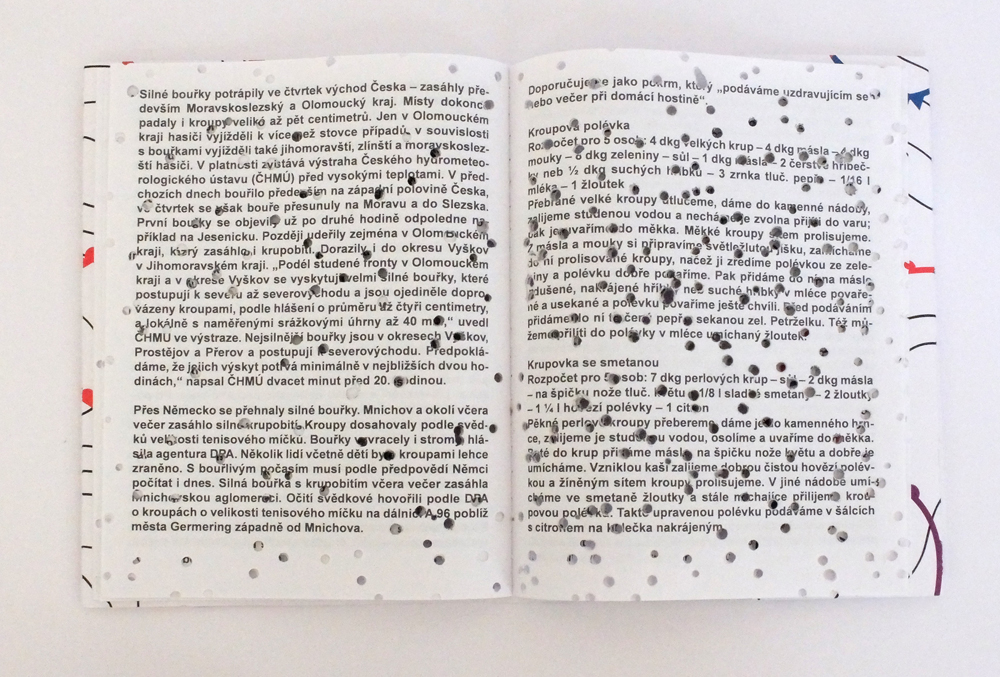 Silné bouřky potrápily ve čtvrtek východ Česka – zasáhly pře-
devším Moravskoslezský a Olomoucký kraj. Místy dokonc
padaly i kroupy veliké až pět centimetrů. Jen v Olomouckém
kraji hasiči vyjížděli k více než stovce případů, v souvislosti
s bouřkami vyjížděli také jihomoravští, zlínští a moravskoslez-
ští hasiči. V platnosti zůstává výstraha Českého hydrometeo-
rologického ústavu (ČHMÚ) před vysokými teplotami. V před-
chozích dnech bouřilo především na západní polovině Česka,
ve čtvrtek se však bouře přesunuly na Moravu a do Slezska.
První bouřky se objevily už po druhé hodině odpoledne na-
příklad na Jesenicku. Později udeřily zejména v Olomouckém
kraji, který zasáhlo i krupobití. Dorazily i do okresu Vyškov
v Jihomoravském kraji. „Podél studené fronty v Olomouckém
kraji a v okrese Vyškov se vyskytují velmi silné bouřky, které
postupují k severu až severovýchodu a jsou ojediněle dopro-
vázeny kroupami, podle hlášení o průměru až čtyři centimetry,
a lokálně s naměřenými srážkovými úhrny až 40 mm,“ uvedl
ČHMÚ ve výstraze. Nejsilnější bouřky jsou v okresech Vyškov,
Prostějov a Přerov a postupují k severovýchodu. Předpoklá-
dáme, že jejich výskyt potrvá minimálně v nejbližších dvou ho-
dinách,“ napsal ČHMÚ dvacet minut před 20. hodinou.
Přes Německo se přehnaly silné bouřky. Mnichov a okolí včera
večer zasáhlo silné krupobití. Kroupy dosahovaly podle svěd-
ků velikosti tenisového míčku. Bouřky vyvracely i stromy, hlá-
sila agentura DPA. Několik lidí včetně dětí bylo kroupami lehce
zraněno. S bouřlivým počasím musí podle předpovědí Němci
počítat i dnes. Silná bouřka s krupobitím včera večer zasáhla
mnichovskou aglomeraci. Očití svědkové hovořili podle DPA
o kroupách o velikosti tenisového míčku na dálnici A 96 poblíž
města Germering západně od Mnichova.
Doporučujeme jako pokrm, který „podáváme uzdravujícím se
nebo večer při domácí hostině“.
Kroupová polévka
Rozpočet pro 5 osob: 4 dkg velkých krup – 4 dkg másla – 4 dkg
mouky – 8 dkg zeleniny – sůl – 1 dkg másla – 2 čerstvé hříbeč-
ky neb ½ dkg suchých hříbků – 3 zrnka tluč. pepře – 1/16 l
mléka – 1 žloutek
Přebrané velké kroupy otlučeme, dáme do kamenné nádoby,
zalijeme studenou vodou a necháme je zvolna přijíti do varu;
pak je uvaříme do měkka. Měkké kroupy sítem prolisujeme.
Z másla a mouky si připravíme světležlutou jíšku, zamícháme
do ní prolisované kroupy, načež ji zředíme polévkou ze zele-
niny a polévku dobře povaříme. Pak přidáme do ní na másle
dušené, nakrájené hříbky neb suché hříbky v mléce povaře-
né a usekané a polévku povaříme ještě chvíli. Před podáváním
přidáme do ní tlučený pepř a sekanou zel. Petrželku. Též mů-
žeme přilíti do polévky v mléce umíchaný žloutek.
Krupovka se smetanou
Rozpočet pro 5 osob: 7 dkg perlových krup – sůl – 2 dkg másla
– na špičku nože tluč. květu – 1/8 l sladké smetany – 2 žloutky
– 1 ¼ l hovězí polévky – 1 citron
Pěkné perlové kroupy přebereme, dáme je do kamenného hrn-
ce, zalijeme je studenou vodou, osolíme a uvaříme do měkka.
Poté do krup přidáme máslo, na špičku nože květu a dobře je
umícháme. Vzniklou kaši zalijeme dobrou čistou hovězí polév-
kou a žíněným sítem kroupy prolisujeme. V jiné nádobě umí-
cháme ve smetaně žloutky a stále míchajíce přilijeme krou-
povou polévku. Takto upravenou polévku podáváme v šálcích
s citronem na kolečka nakrájeným.